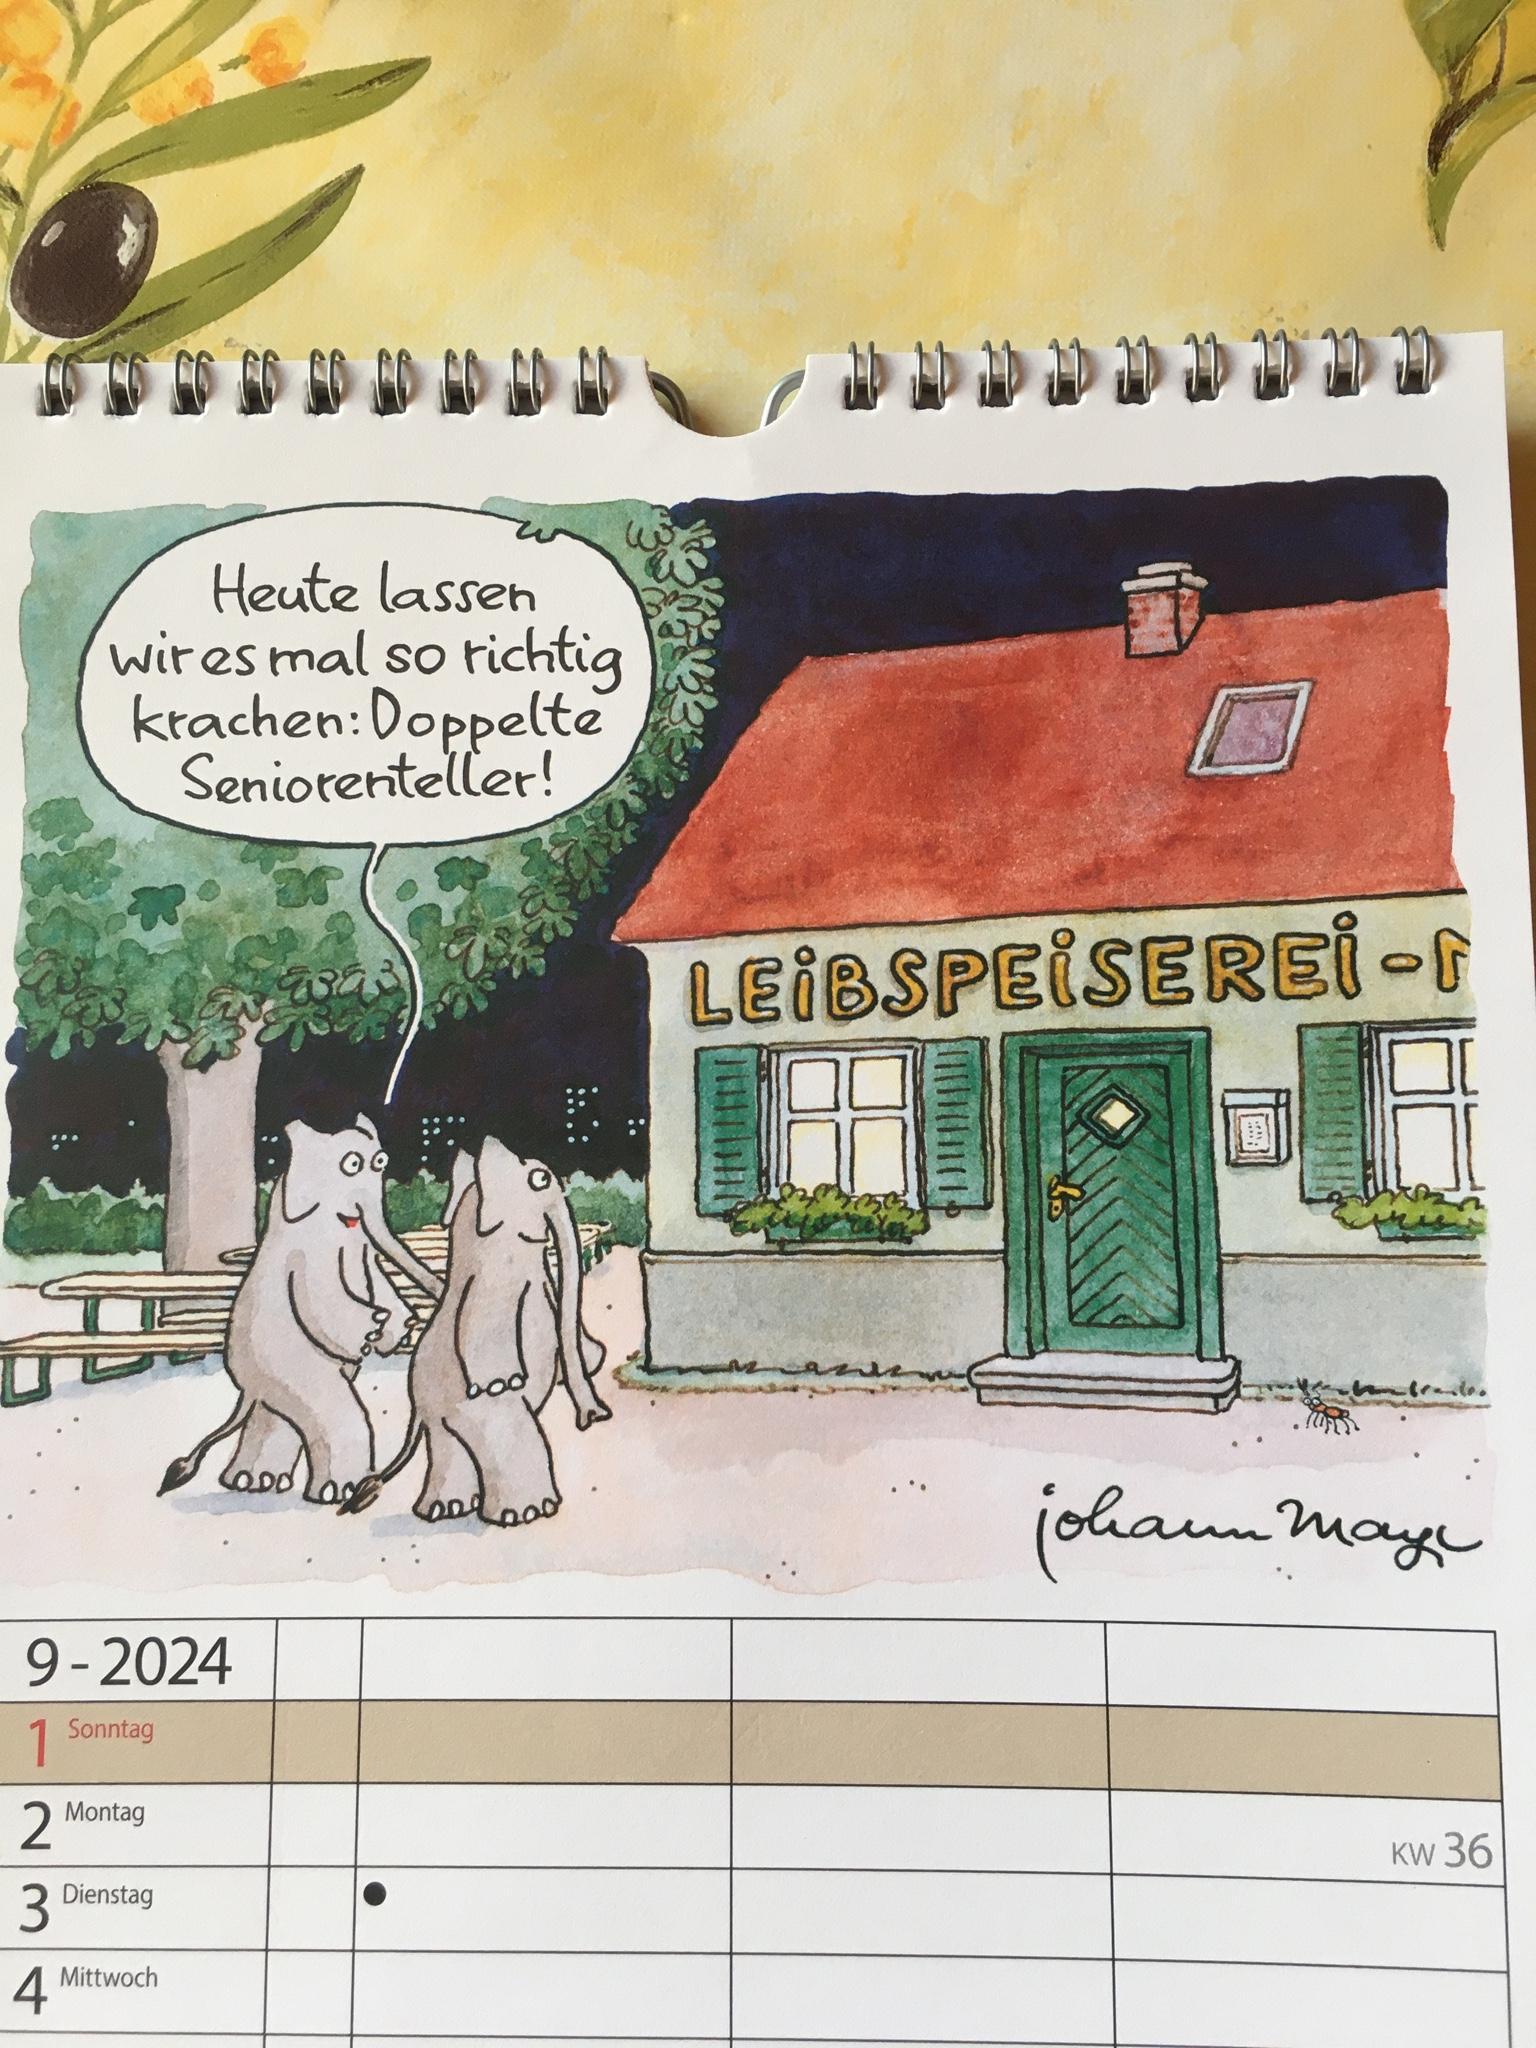 Heute lassen
wir es mal so richtig
krachen: Doppelte
Seniorenteller!
LEiBSPEiSEREi -
johann mayr
9 - 2024
1 Sonntag
2 Montag
KW 36
3 Dienstag
4 Mittwoch